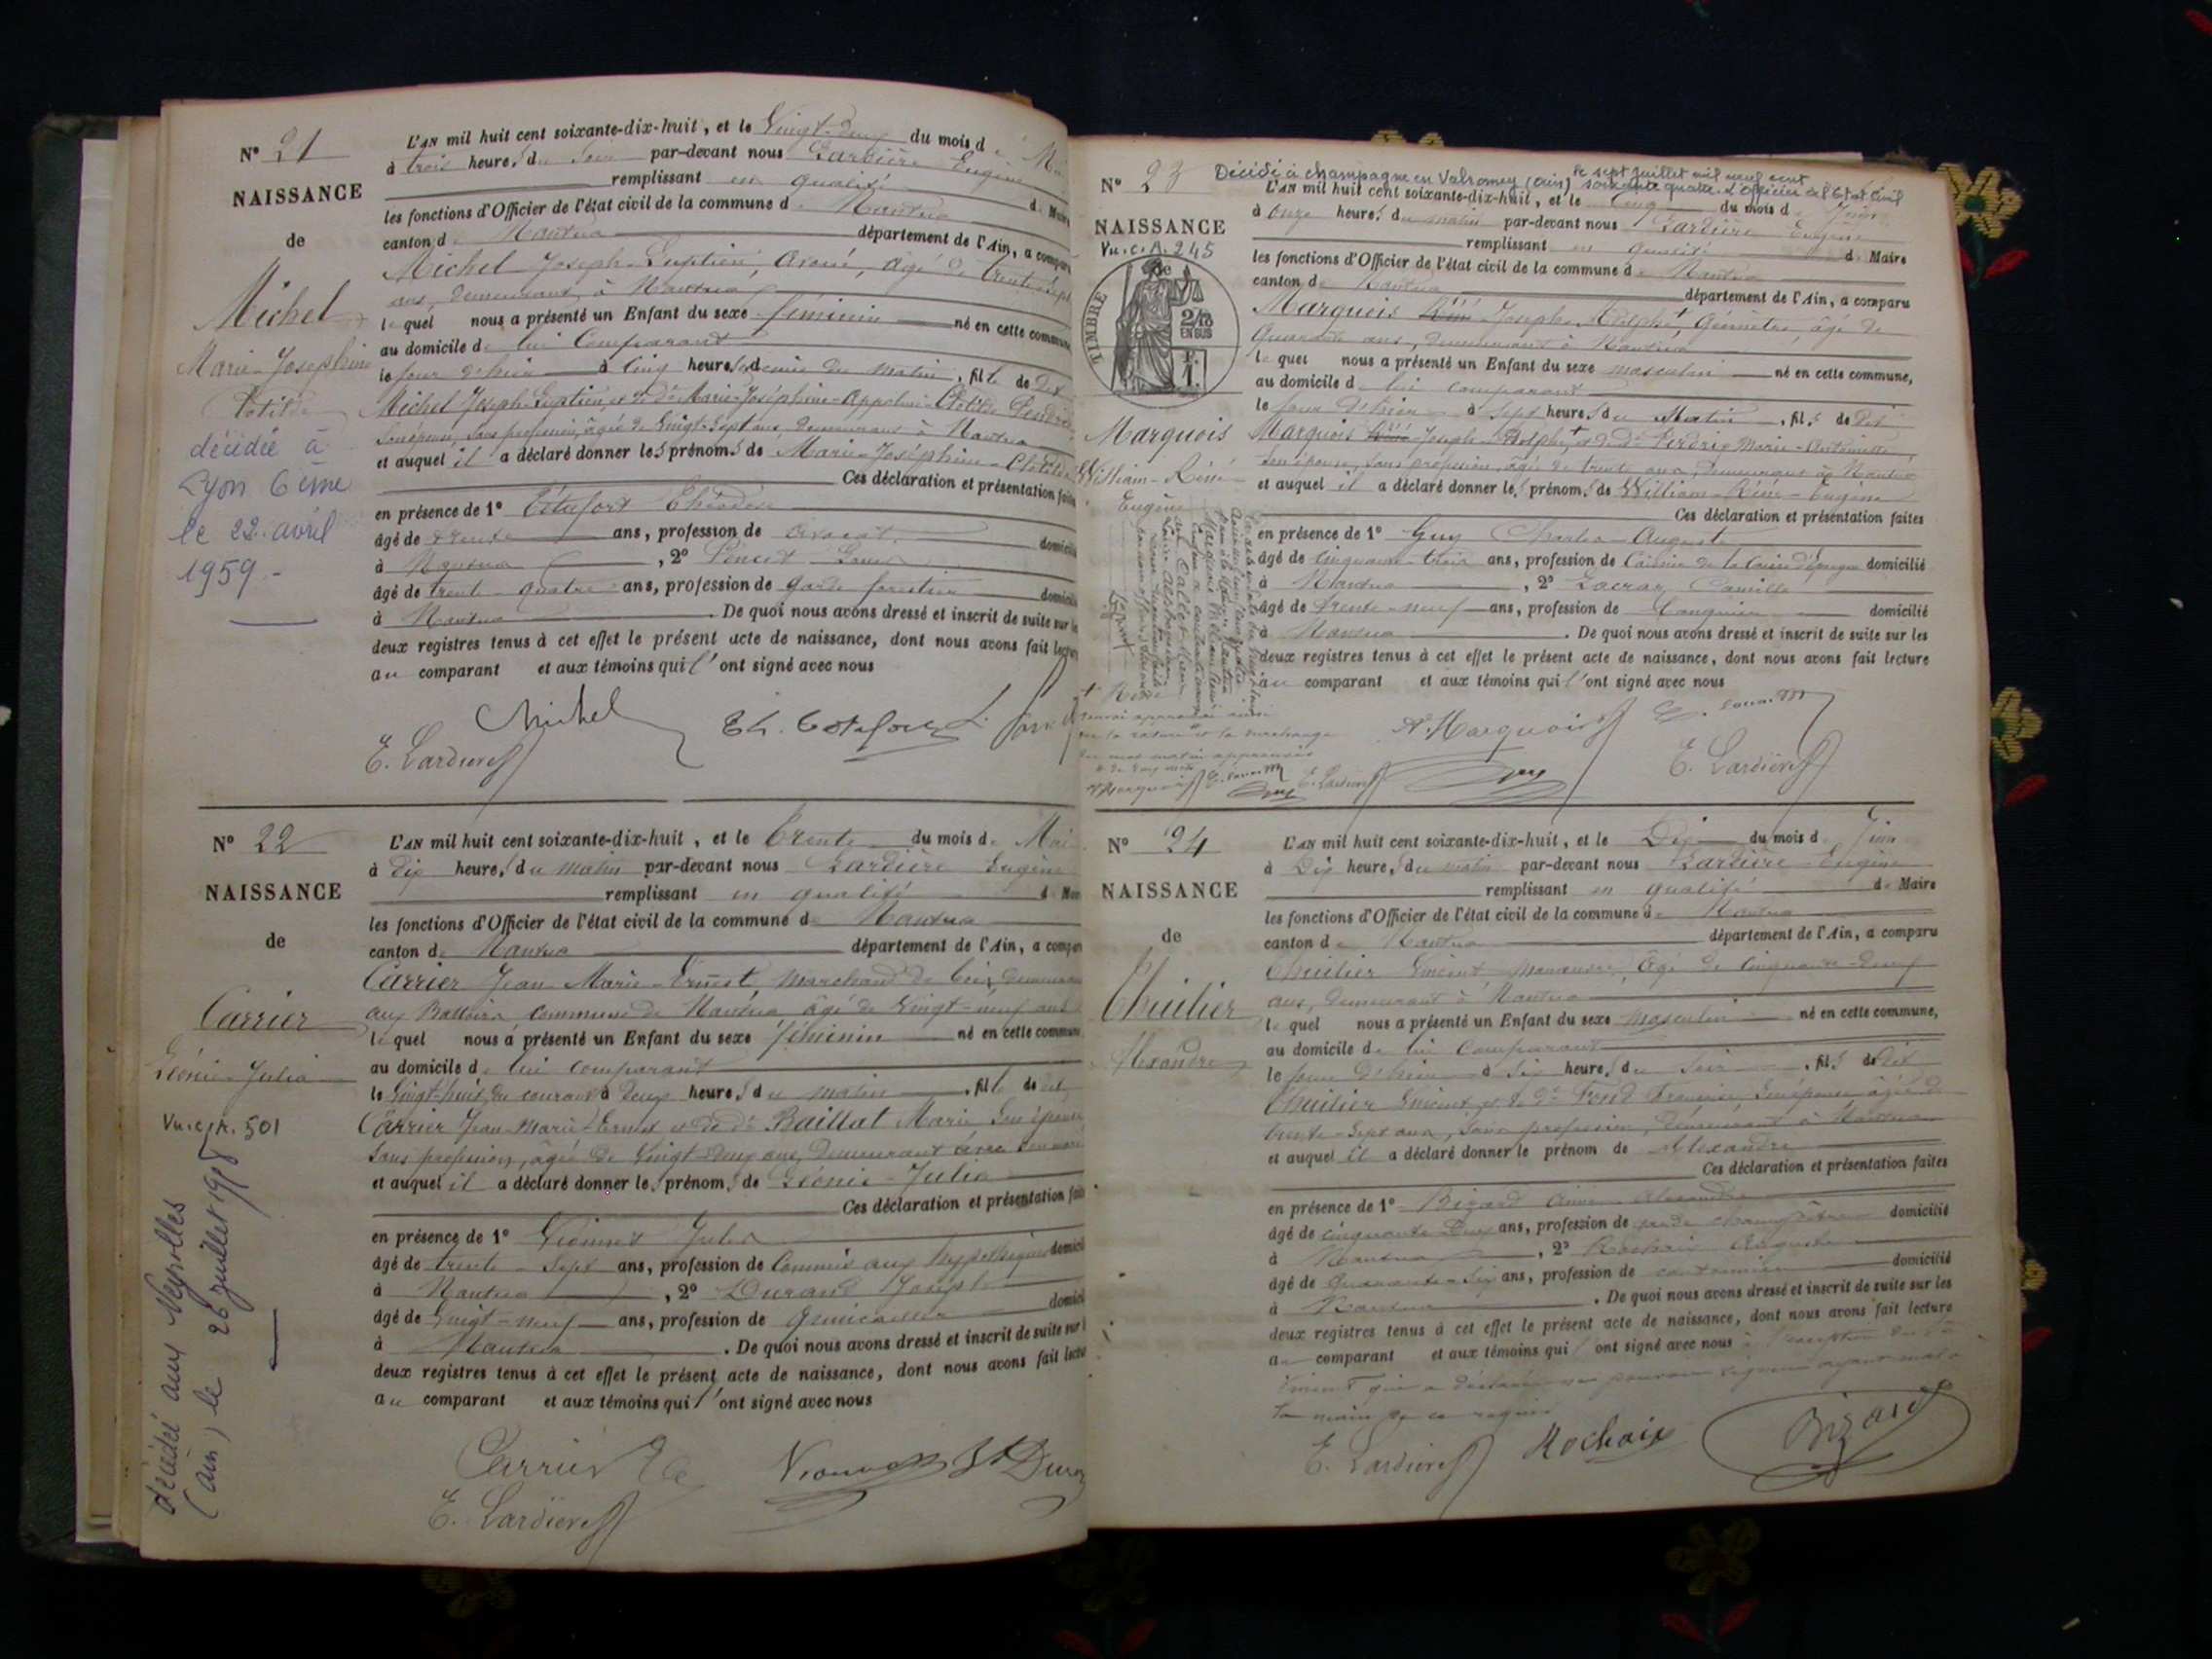 N° 21
NAISSANCE
de
Michel
Marie-Joséphine
Clotilde
décédée à
Lyon 6ème
le 22 avril
1959.-
L'AN mil huit cent soixante-dix-huit, et le Vingt-deux du mois de
à trois heures du soir par-devant nous Lardière Eugène
remplissant en qualité de Maire
les fonctions d'Officier de l'état civil de la commune de Nantua
canton de Nantua département de l'Ain, a comparu
Michel Joseph , Avoué, âgé de trente-sept
ans, demeurant à Nantua
lequel nous a présenté un Enfant du sexe féminin né en cette commune
au domicile de lui Comparant
le jour d'hier à cinq heures demie du matin, fille de dit
Michel Joseph et de de Marie-Joséphine Clotilde
Son épouse, sans profession, âgée de Vingt-sept ans, demeurant à Nantua
et auquel il a déclaré donner les prénoms de Marie-Joséphine-Clotilde
Ces déclaration et présentation faites
en présence de 1°
âgé de trente ans, profession de avocat domicilié
à Nantua, 2° Louis
âgé de trente-quatre ans, profession de garde forestier domicilié
à Nantua. De quoi nous avons dressé et inscrit de suite sur les
deux registres tenus à cet effet le présent acte de naissance, dont nous avons fait lecture
au comparant et aux témoins qui l'ont signé avec nous
Michel
E. Lardière
N° 22
NAISSANCE
de
Carrier
Léonie-Julia
Vu.c.r.501
décédée aux Neyrolles
(ain) le 26 juillet
L'AN mil huit cent soixante-dix-huit, et le Trente du mois de Mai
à Dix heures du matin par-devant nous Lardière Eugène
remplissant en qualité de
les fonctions d'Officier de l'état civil de la commune de Nantua
canton de Nantua département de l'Ain, a comparu
Carrier Jean-Marie-Ernest, marchand de bois, demeurant
aux Battoirs commune de Nantua âgé de Vingt-neuf ans
lequel nous a présenté un Enfant du sexe féminin né en cette commune
au domicile de lui comparant
le Vingt-huit du courant à Deux heures du matin, fille de dit
Carrier Jean-Marie-Ernest et de de Baillat Marie Son épouse
Sans profession, âgée de Vingt-deux ans, Demeurant avec son mari
et auquel il a déclaré donner les prénoms de Léonie-Julia
Ces déclaration et présentation faites
en présence de 1° Vionnet Jules
âgé de trente-sept ans, profession de Commis aux hypothèques domicilié
à Nantua, 2° Durand Joseph
âgé de Vingt-neuf ans, profession de domicilié
à Nantua. De quoi nous avons dressé et inscrit de suite sur les
deux registres tenus à cet effet le présent acte de naissance, dont nous avons fait lecture
au comparant et aux témoins qui l'ont signé avec nous
Carrier
E. Lardière
N° 23
Décédé à Champagne en Valromey (Ain) le sept juillet mil neuf cent
soixante quatre. L'officier de l'Etat Civil
NAISSANCE
Vu.c.R.245
de
TIMBRE
2/10
EN SUS
F.
1.
Marquois
William-Réné
Eugène
L'AN mil huit cent soixante-dix-huit, et le Cinq du mois de Juin
à Onze heures du matin par-devant nous Lardière Eugène
remplissant en qualité de Maire
les fonctions d'Officier de l'état civil de la commune de Nantua
canton de Nantua département de l'Ain, a comparu
Marquois Joseph-Adolphe+, Géomètre, âgé de
Quarante ans, demeurant à Nantua
lequel nous a présenté un Enfant du sexe masculin né en cette commune,
au domicile de lui comparant
le jour d'hier à sept heures du Matin, fils de Dit
Marquois Joseph-Adolphe+ et de de Perdrix Marie-Antoinette
son épouse, sans profession, âgée de trente ans, demeurant à Nantua
et auquel il a déclaré donner les prénoms de William-Réné-Eugène
Ces déclaration et présentation faites
en présence de 1° Guy Charles-Auguste
âgé de Cinquante-trois ans, profession de Caissier de la Caisse d'épargne domicilié
à Nantua, 2° Camille
âgé de Trente-neuf ans, profession de Banquier domicilié
à Nantua. De quoi nous avons dressé et inscrit de suite sur les
deux registres tenus à cet effet le présent acte de naissance, dont nous avons fait lecture
au comparant et aux témoins qui l'ont signé avec nous
A. Marquois
Guy
E. Lardière
N° 24
NAISSANCE
de
Thuilier
Alexandre
L'AN mil huit cent soixante-dix-huit, et le Dix du mois de Juin
à Dix heures du matin par-devant nous Lardière Eugène
remplissant en qualité de Maire
les fonctions d'Officier de l'état civil de la commune de Nantua
canton de Nantua département de l'Ain, a comparu
Thuilier Vincent manœuvre, âgé de Cinquante-
ans, demeurant à Nantua
lequel nous a présenté un Enfant du sexe masculin né en cette commune,
au domicile de lui Comparant
le jour d'hier à Six heures du Soir, fils de Dit
Thuilier Vincent et de de Fond Françoise Son épouse âgée de
trente-sept ans, sans profession, demeurant à Nantua
et auquel il a déclaré donner le prénom de Alexandre
Ces déclaration et présentation faites
en présence de 1° Bizard Alexandre
âgé de cinquante Deux ans, profession de garde champêtre domicilié
à Nantua, 2° Rochaix Auguste
âgé de Quarante-six ans, profession de cantonnier domicilié
à Nantua. De quoi nous avons dressé et inscrit de suite sur les
deux registres tenus à cet effet le présent acte de naissance, dont nous avons fait lecture
au comparant et aux témoins qui l'ont signé avec nous à l'exception du
Vincent qui a déclaré ne pouvoir signer ayant mal à
la main de ce requis
E. Lardière Rochaix Bizard